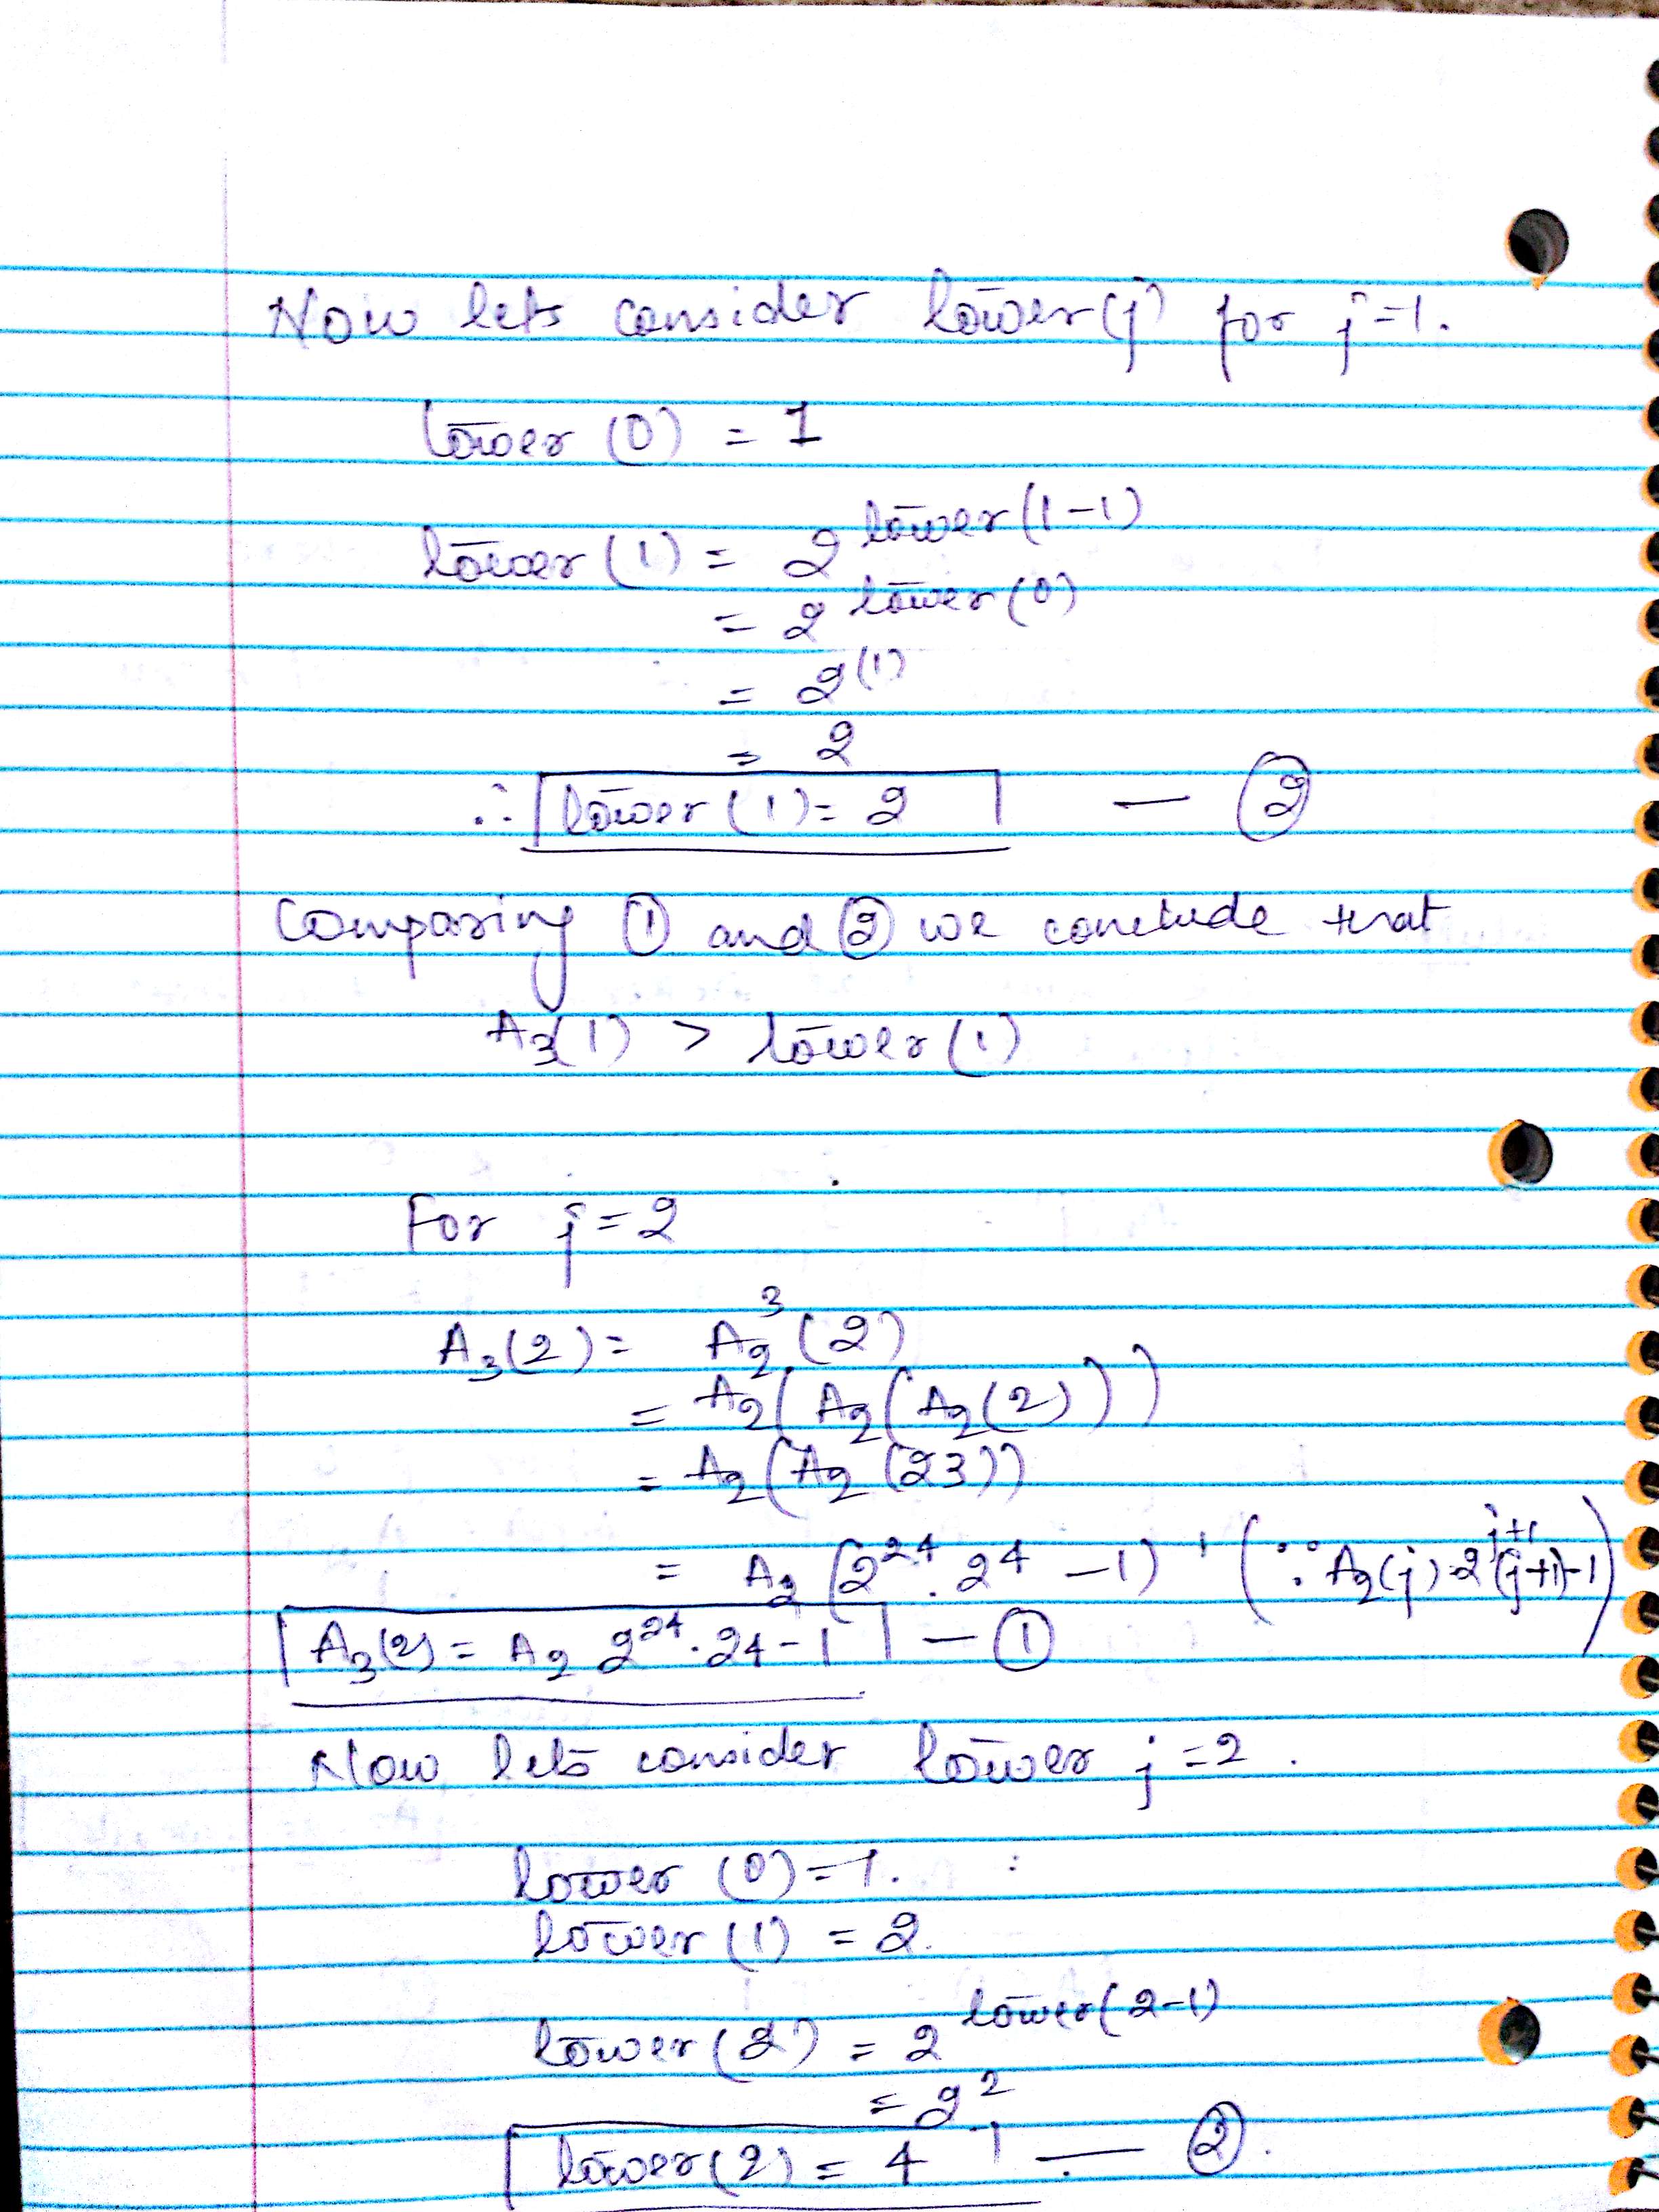 Now lets consider tower(j) for j=1.
tower (0) = 1
tower (1) = 2^tower(1-1)
= 2^tower(0)
= 2^(1)
= 2
∴ tower (1) = 2 — ②
Comparing ① and ② we conclude that
A₃(1) > tower (1)
For j=2
A₃(2) = A₂³(2)
= A₂(A₂(A₂(2)))
= A₂(A₂(23))
= A₂(2^24 . 24 -1) (∵ A₂(j)=2^j+1(j+1)-1)
A₃(2) = A₂ 2^24 . 24 - 1 — ①
Now lets consider tower j=2.
tower (0)=1.
tower (1) = 2.
tower (2) = 2^tower(2-1)
= 2^2
tower(2) = 4 — ②.